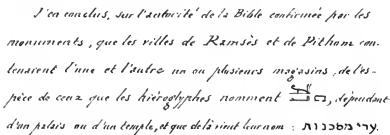 J'en conclus, sur l'autorité de la Bible confirmée par les
monuments, que les villes de Ramsès et de Pithom con-
tenaient l'une et l'autre un ou plusieurs magasins, de l'es-
pèce de ceux que les hiéroglyphes nomment , dépendant
d'un palais ou d'un temple, et que de là vient leur nom : ערי מסכנות.